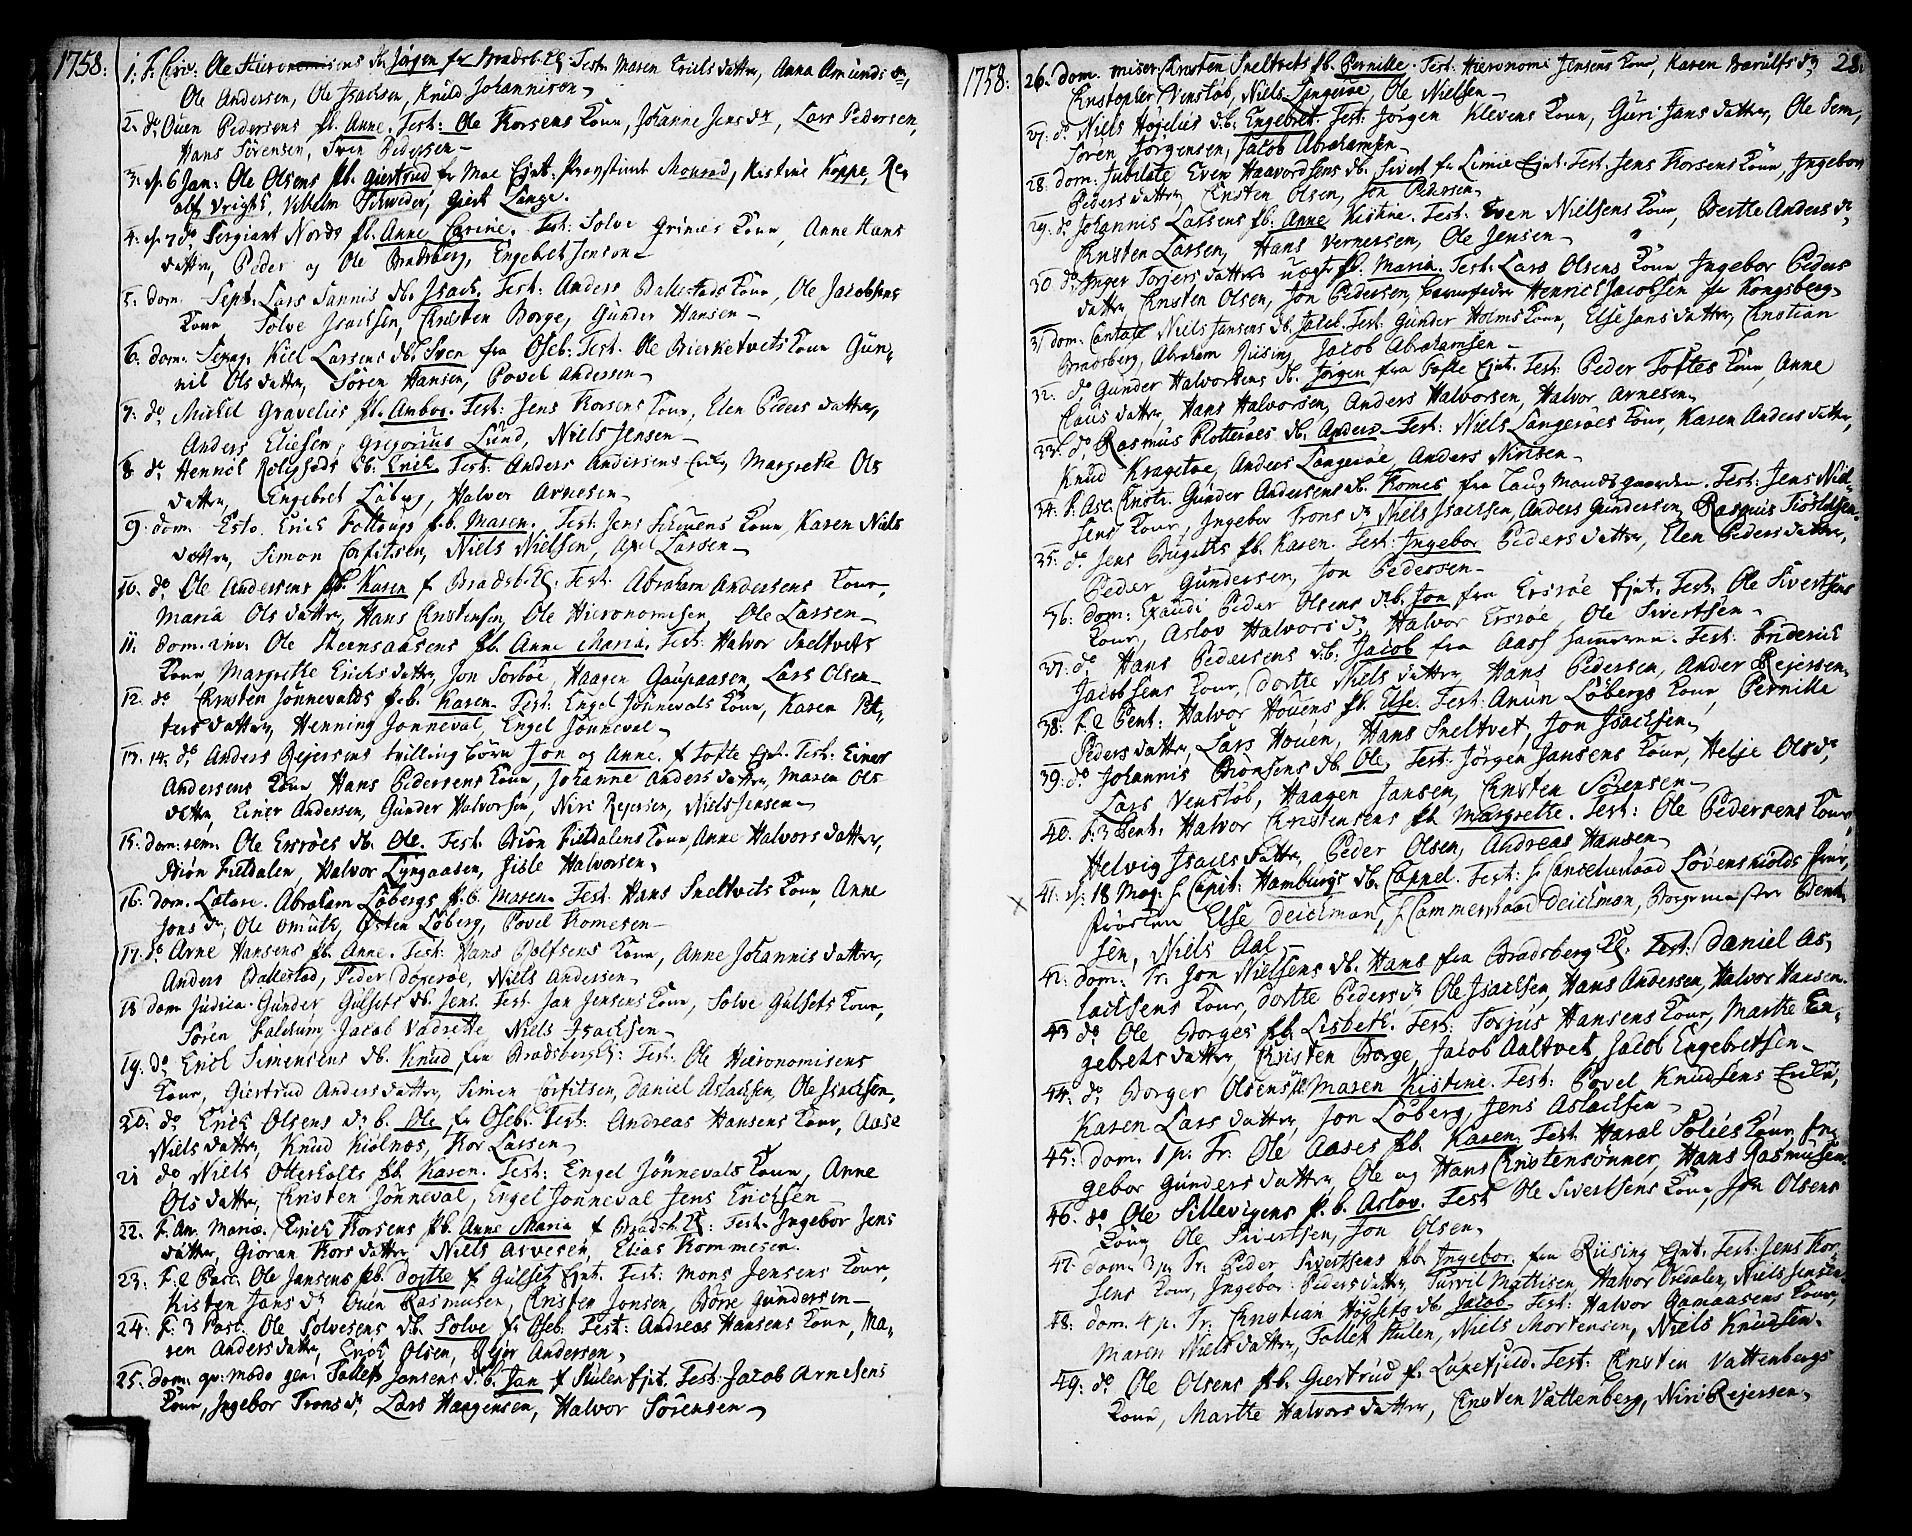 1758.
1. F. Circ. Ole Hieronomisens db. Jörgen fr Bradsb. Test. Maren Erichs datter, Anna Amunds dr,
Ole Andersen, Ole Jsachsen, Knud Johannison
2. do Ouen Pedersens pb. Anne. Test: Ole Thorsens Kone, Johanne Jens dr, Lars Pedersen,
Hans Sörensen, Sven Pedersen
3. d. 6 Jan: Ole Olsens pb. Giertrud fr Mae Ejnt. Monrad, Kistine Koppe,
Vilhelm Schrøder, Giert Lange.
4. d. 7 do Sergiant Nords pb. Anne Carine. Test: Solve Grinies Kone, Anne Hans
datter, Peder og Ole Bradsberg, Engebret Jenson
5. dom. Sept. Lars Sannis db. Jsach. Test: Anders Ballestads Kone, Ole Jacobsens
Kone Solve Jsachsen, Christen Borge, Gunder Hansen
6. dom. Sexag. Kiel Larsens db. Sven fra Oseb. Test. Ole Bierketvets Kone Gun-
nil Ols datter, Sören Hansen, Povel Andersen
7. do Michel Gravelies pb. Ambor. Test: Jens Thorsens Kone, Elen Peders datter,
Anders Eliesen, Gregorius Lund, Niels Jensen
8 do Henrich Roligheds db. Erich Test: Anders Andersens Margrethe Ols
datter, Engebret Löberg, Halvor Arnesen
9. dom. Esto. Erich Follaugs pb. Maren. Test. Jens Kone, Karen Niels
datter, Simon Corfitsen, Niels Nielsen, Axel Larsen
10. do Ole Andersens pb. Karen f Bradsb. Test. Abraham Andersens Kone
Maria Ols datter, Hans Christensen, Ole Hieronomisen, Ole Larsen
11. dom. inv. Ole Steensaasens pb. Anne Maria. Test: Halvor Sneltvets
Kone, Margrethe Erichs datter, Jon Torboe, Haagen Gaupaasen, Lars Olsen
12. do Christen Jönnevalds pb. Karen. Test: Engel Jönnevals Kone, Karen Pet-
ters datter, Henning Jonneval, Engel Jonneval
13. 14. do Anders Rejersens tvilling börn Jon og Anne. f Tofte Ejnt. Test: Einer
Andersens Kone Hans Pedersens Kone, Johanne Anders datter, Maren Ols
datter, Einer Andersen, Gunder Halvorsen, Niri Rejersen, Niels Jensen
15. dom: rem. Ole Ersröes db. Ole. Test. Biön Fieldalens Kone, Anne Halvors datter,
Biön Fieldalen, Halvor Lyngaasen, Jisle Halvorsen.
16. dom. Lætare. Abraham Löbergs pb. Maren. Test. Hans Sneltvets Kone, Anne
Jons dr, Ole Omuth, Östen Löberg, Povel Thomesen
17. do Arne Hansens pb. Anne. Test: Hans Rolfsens Kone, Anne Johannis datter,
Anders Ballestad, Peder Dögeröe, Niels Andersen
18 dom Judica. Gunder Gulsets db. Jens. Test. Jan Jensens Kone, Solve Gulsets Kone,
Sören Falchum, Jacob Vadrette, Niels Jsachsen
19. do Erich Simensens db. Knud fra Bradsberg: Test. Ole Hieronomisens
Kone, Giertrud Anders datter, Simen Corfitsen, Daniel Aslachsen, Ole Jsachsen,
20. do Erich Olsens d. b. Ole fr Oseb. Test: Andreas Hansens Kone, Aase
Niels datter, Knud Kiölnæs, Thor Larsen
21 do Niels Otterholts pb. Karen. Test: Engel Jönnevals Kone, Anne
Ols datter, Christen Jönneval, Engel Jonneval Jens Erichsen
22. F. An. Mariæ. Erich Thorsens pb. Anne Maria f Bradsb.: Test. Ingebor Jens
datter, Gioran Thors datter, Niels Arvesen, Elias Thommesen.
23. F: 2 Pasc. Ole Jansens pb. Dorthe f Gulset Ejnt. Test: Mons Jensens Kone,
Kisten Jans dr Ouen Rasmusen, Christen Jonsen, Börre Gundersen
24. F: 3 Pasc: Ole Solvesens db. Solve fr Oseb. Test: Andreas Hansens Kone, Ma-
ren Anders datter, Erich Olsen, Andersen,
25. dom: qv: modo gen: Tollef Jonsens d. b. Jan f Skulen Ejnt. Test: Jacob Arnesens
Kone, Ingebor Trons dr, Lars Haagensen, Halvor Sörensen
1758.
28.
26. dom. miser: Christen Sneltvets pb. Pernille. Test: Hieronomi Jensens Kone, Karen Barulfs dr
Christopher Venstöb, Niels Langeröe, Ole Nielsen
27. do Niels Högelies db: Engebret. Test. Jörgen Klevens Kone, Guri Jans datter, Ole Sem,
Sören Jörgensen, Jacob Abrahamsen
28. dom: Jubilate Even Haavordsens db. Sivert fr Limie Ejnt. Test. Jens Thorsens Kone, Ingebor
Peders datter, Christen Olsen, Jon Pedersen
29. do Johannis Larsens pb. Anne Kistine. Test. Even Nielsens Kone, Berthe Anders dr,
Christen Larsen, Hans Vernersen, Ole Jensen
30. do Inger Torjers datters uægte pb. Maria. Test. Lars Olsens Kone, Ingebor Peders
datter, Christen Olsen, Jon Pedersen, barnefader Henrich Jacobsen fra Kongsberg
31 dom: Cantate Niels Jansens db. Jacob. Test. Gunder Holms Kone, Else Jans datter, Christian
Bradsberg, Abraham Riising, Jacob Abrahamsen
32. do Gunder Halvorsens db. Jörgen fra Tofte Ejnt. Test: Peder Toftes Kone, Anne
Claus datter, Hans Halvorsen, Anders Halvorsen, Halvor Arnesen
33. do Rasmus Flotteröes db. Anders. Test: Niels Langeröes Kone, Karen Anders datter,
Knud Kragetoe, Anders Langeröe, Anders Nirisen
34. F. Asc. Christi. Gunder Andersens db. Thomes fra Laugmandsgaarden. Test: Jens Niel-
sens Kone, Ingebor Trons dr Niels Jsachsen, Anders Gundersen, Rasmus
35. do Jens Bugetts pb. Karen. Test: Ingebor Peders datter, Elen Peders datter,
Peder Gundersen, Jon Pedersen
36. dom: Exaudi Peder Olsens db. Jon fra Ersröe Ejnt. Test. Ole Sivertsens
Kone, Aslov Halvors dr Halvor Ersröe, Ole Sivertsen
37. do Hans Pedersens db: Jacob fra Aass Test: Friderich
Jacobsens Kone, Dorthe Niels datter, Hans Pedersen, Ander Rejersen
38. F. 2 Pent: Halvor Houens pb. Else. Test: Anun Löbergs Kone, Pernille
Peders datter, Lars Houen, Hans Sneltvet, Jon Jsachsen
39. do Johannis Biönsens db. Ole. Test: Jörgen Jansens Kone, Helje Ols dr,
Lars Venstöb, Haagen Jansen, Christen Sörensen
40. F. 3 Pent: Halvor Christensens pb. Margrethe. Test: Ole Pedersens Kone,
Helvig Jsachs datter, Peder Olsen, Andreas Hansen
41. d. 18 Maj. Capit: Hamburgs db. Cappel. Test: Cancelieraad Lövenskiolds Frue,
Else Deichman, Cammerraad Deichman, Borgemester Bent-
sen, Niels Aal
42. dom: Tr. Jon Nielsens db. Hans fra Bradsberg. Test: Daniel As-
lachsens Kone, Dorthe Peders dr Ole Jsachsen, Hans Andersen, Halvor Hansen
43 do Ole Borges pb. Lisbeth. Test: Torjus Hansens Kone, Marthe En-
gebrets datter, Christen Borge, Jacob Aaltvet, Jacob Engebretsen
44. do Borger Olsens pb. Maren Kistine. Test: Povel Knudsens Enke,
Karen Lars datter, Jon Löberg, Jens Aslachsen
45: dom. 1 p. Tr. Ole Aases pb. Karen. Test. Haral Solies Kone In-
gebor Gunders datter, Ole og Hans Christensönner, Hans Rasmusen
46. do Ole Sillevigens pb. Aslov. Test Ole Sivertsens Kone, Jon Olsens
Kone, Ole Sivertsen, Jon Olsen.
47. dom. 3 p. Tr. Peder Sivertsens pb. Ingebor. fra Riising Ejnt. Test: Jens Thor-
sens Kone, Ingebor Peders datter, Torvil Mattisen, Halvor Niels Jensen
48: dom. 4 p. Tr: Christian Höysets db. Jacob. Test: Halvor Gamaasens Kone,
Maren Niels datter, Tollef Kulen, Niels Mortensen, Niels Knudsen.
49: do Ole Olsens pb. Giertrud fr Luxefjeld. Test: Christen Vattenbergs
Kone, Marthe Halvors datter, Christen Vattenberg, Niri Rejersen